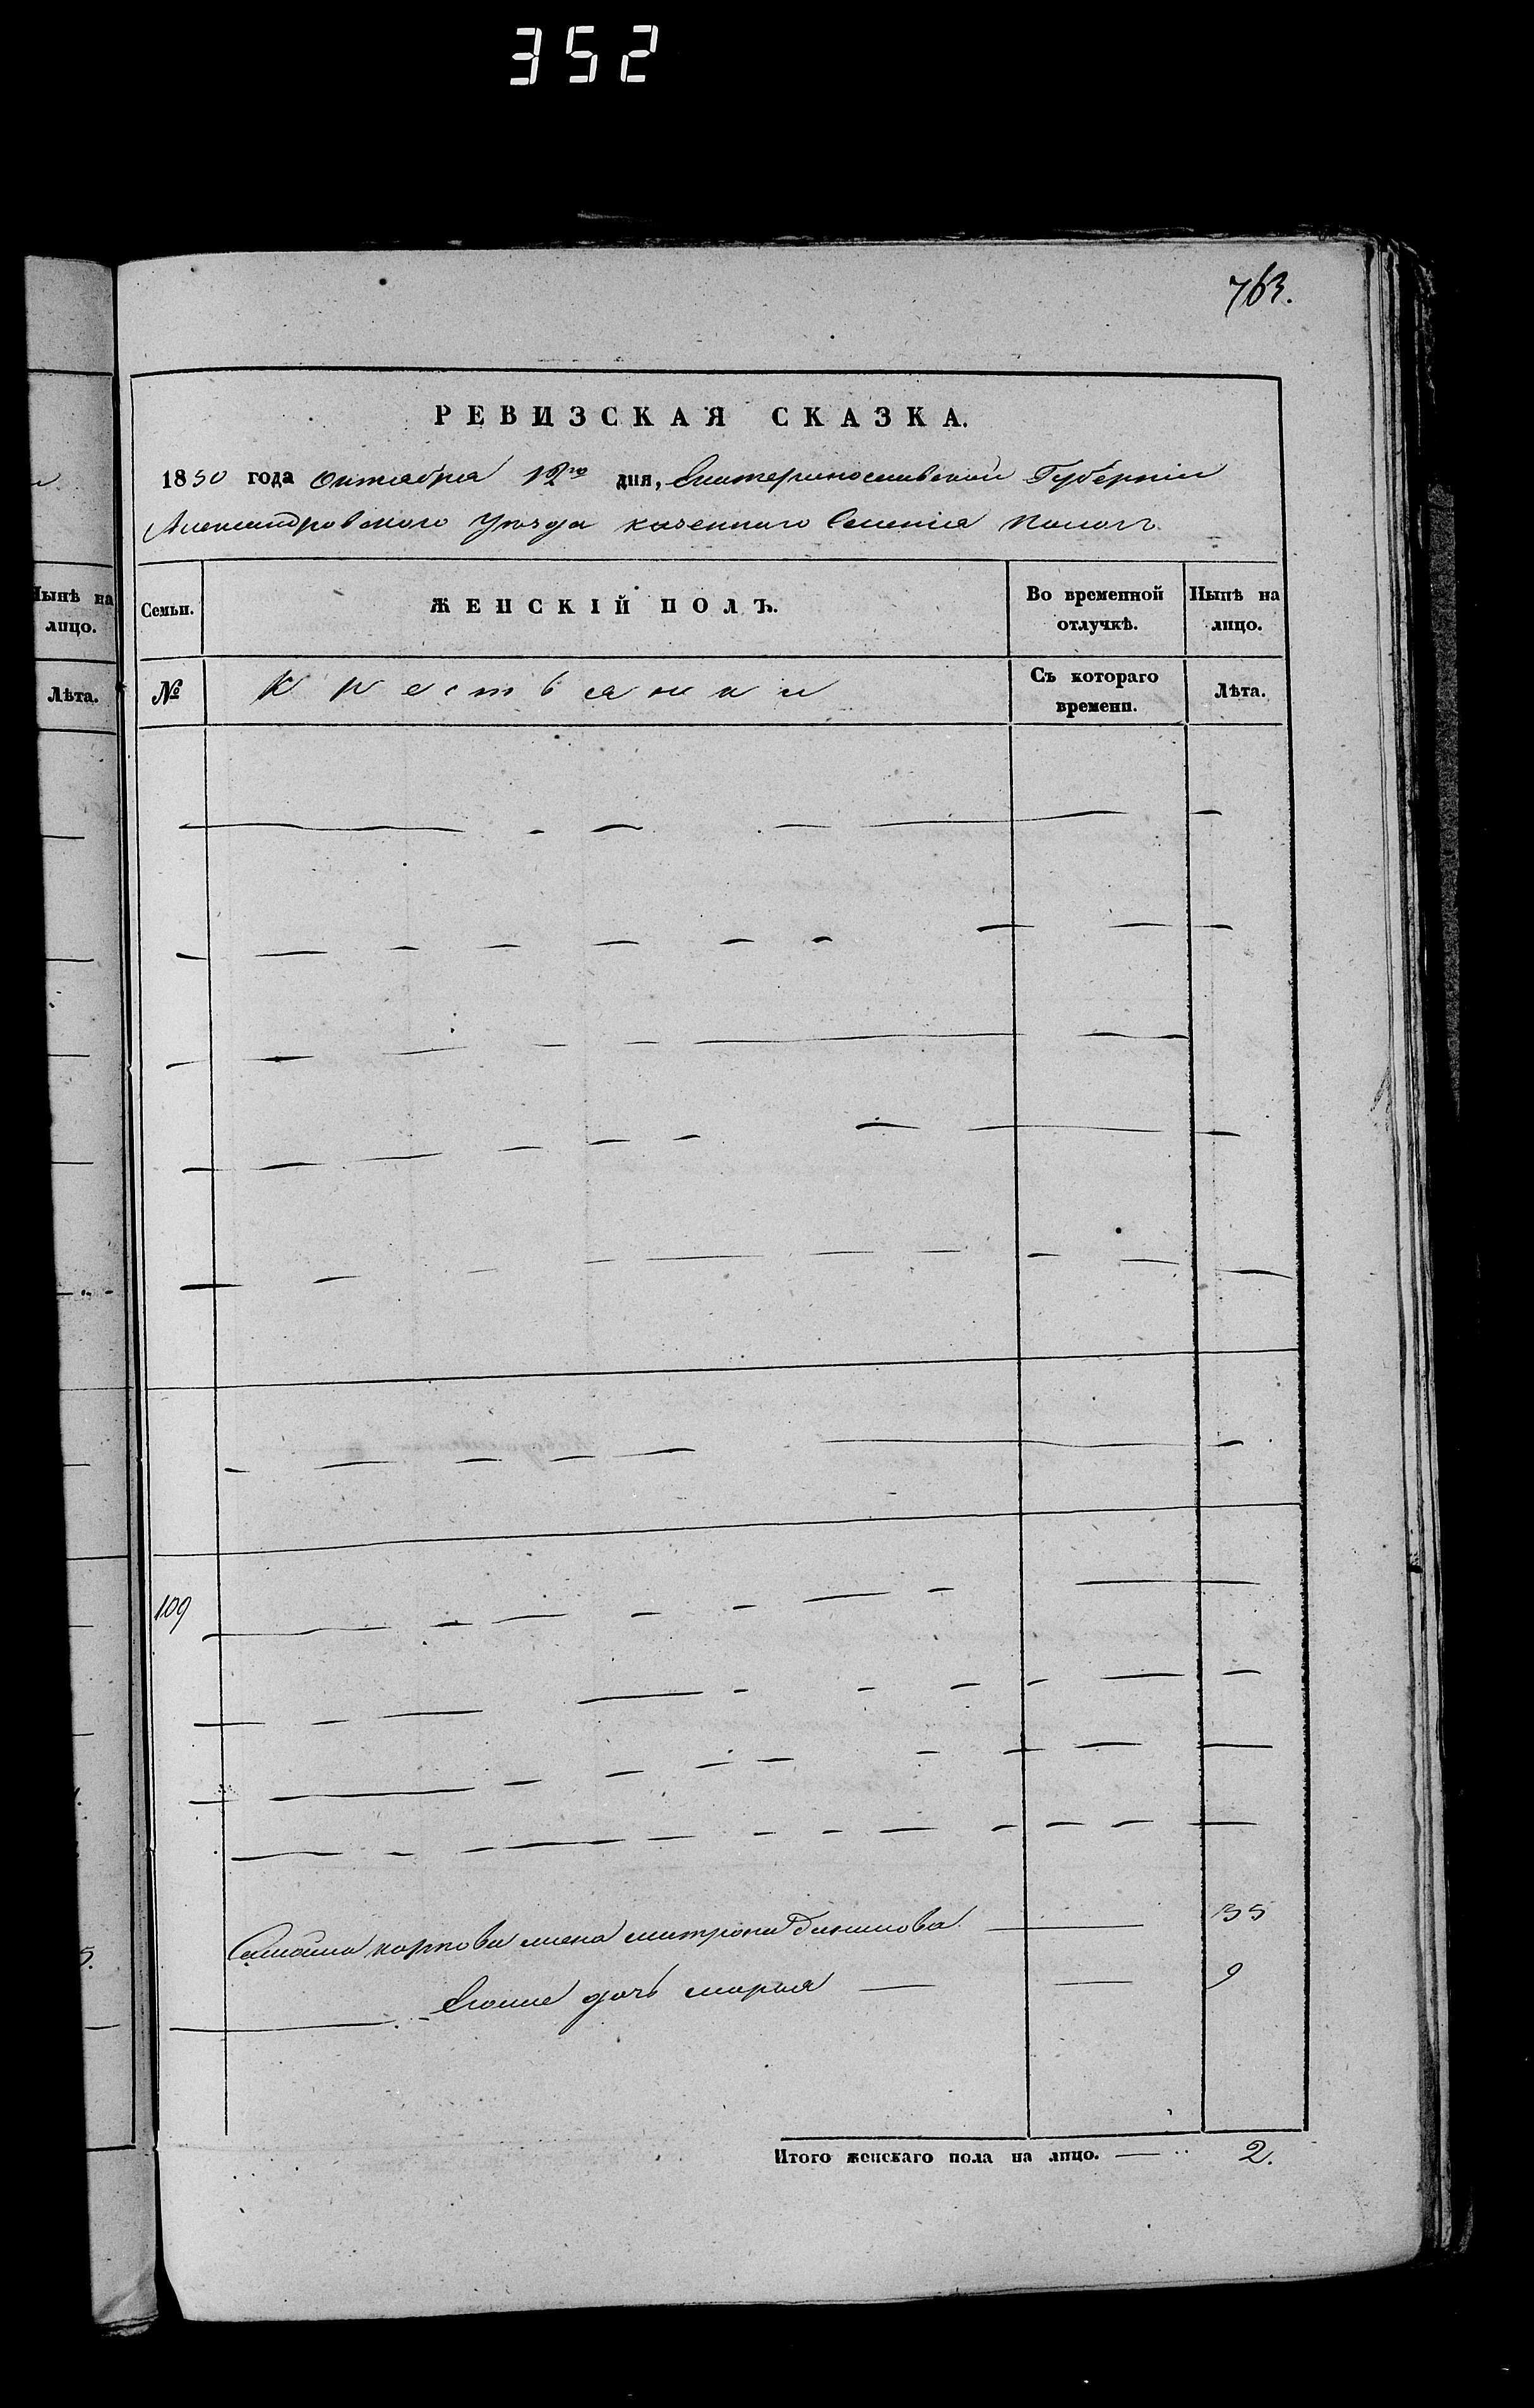 352
763.
РЕВИЗСКАЯ СКАЗКА.
1850 года Октября 12го дня, Екатеринославской Губерніи
Александровского Уезда казенного Селенія Пологъ
Ныпѣ на лицо.
Лѣта.
Семьи.
ЖЕНСКІЙ ПОЛЪ.
Во временной отлучкѣ.
Нынѣ на лицо.
№
Крестьянки
Съ котораго времени.
Лѣта.
109
карпова жена матрона Данилова 35
Егоже дочь марья 9
Итого женскаго пола на лицо. 2.